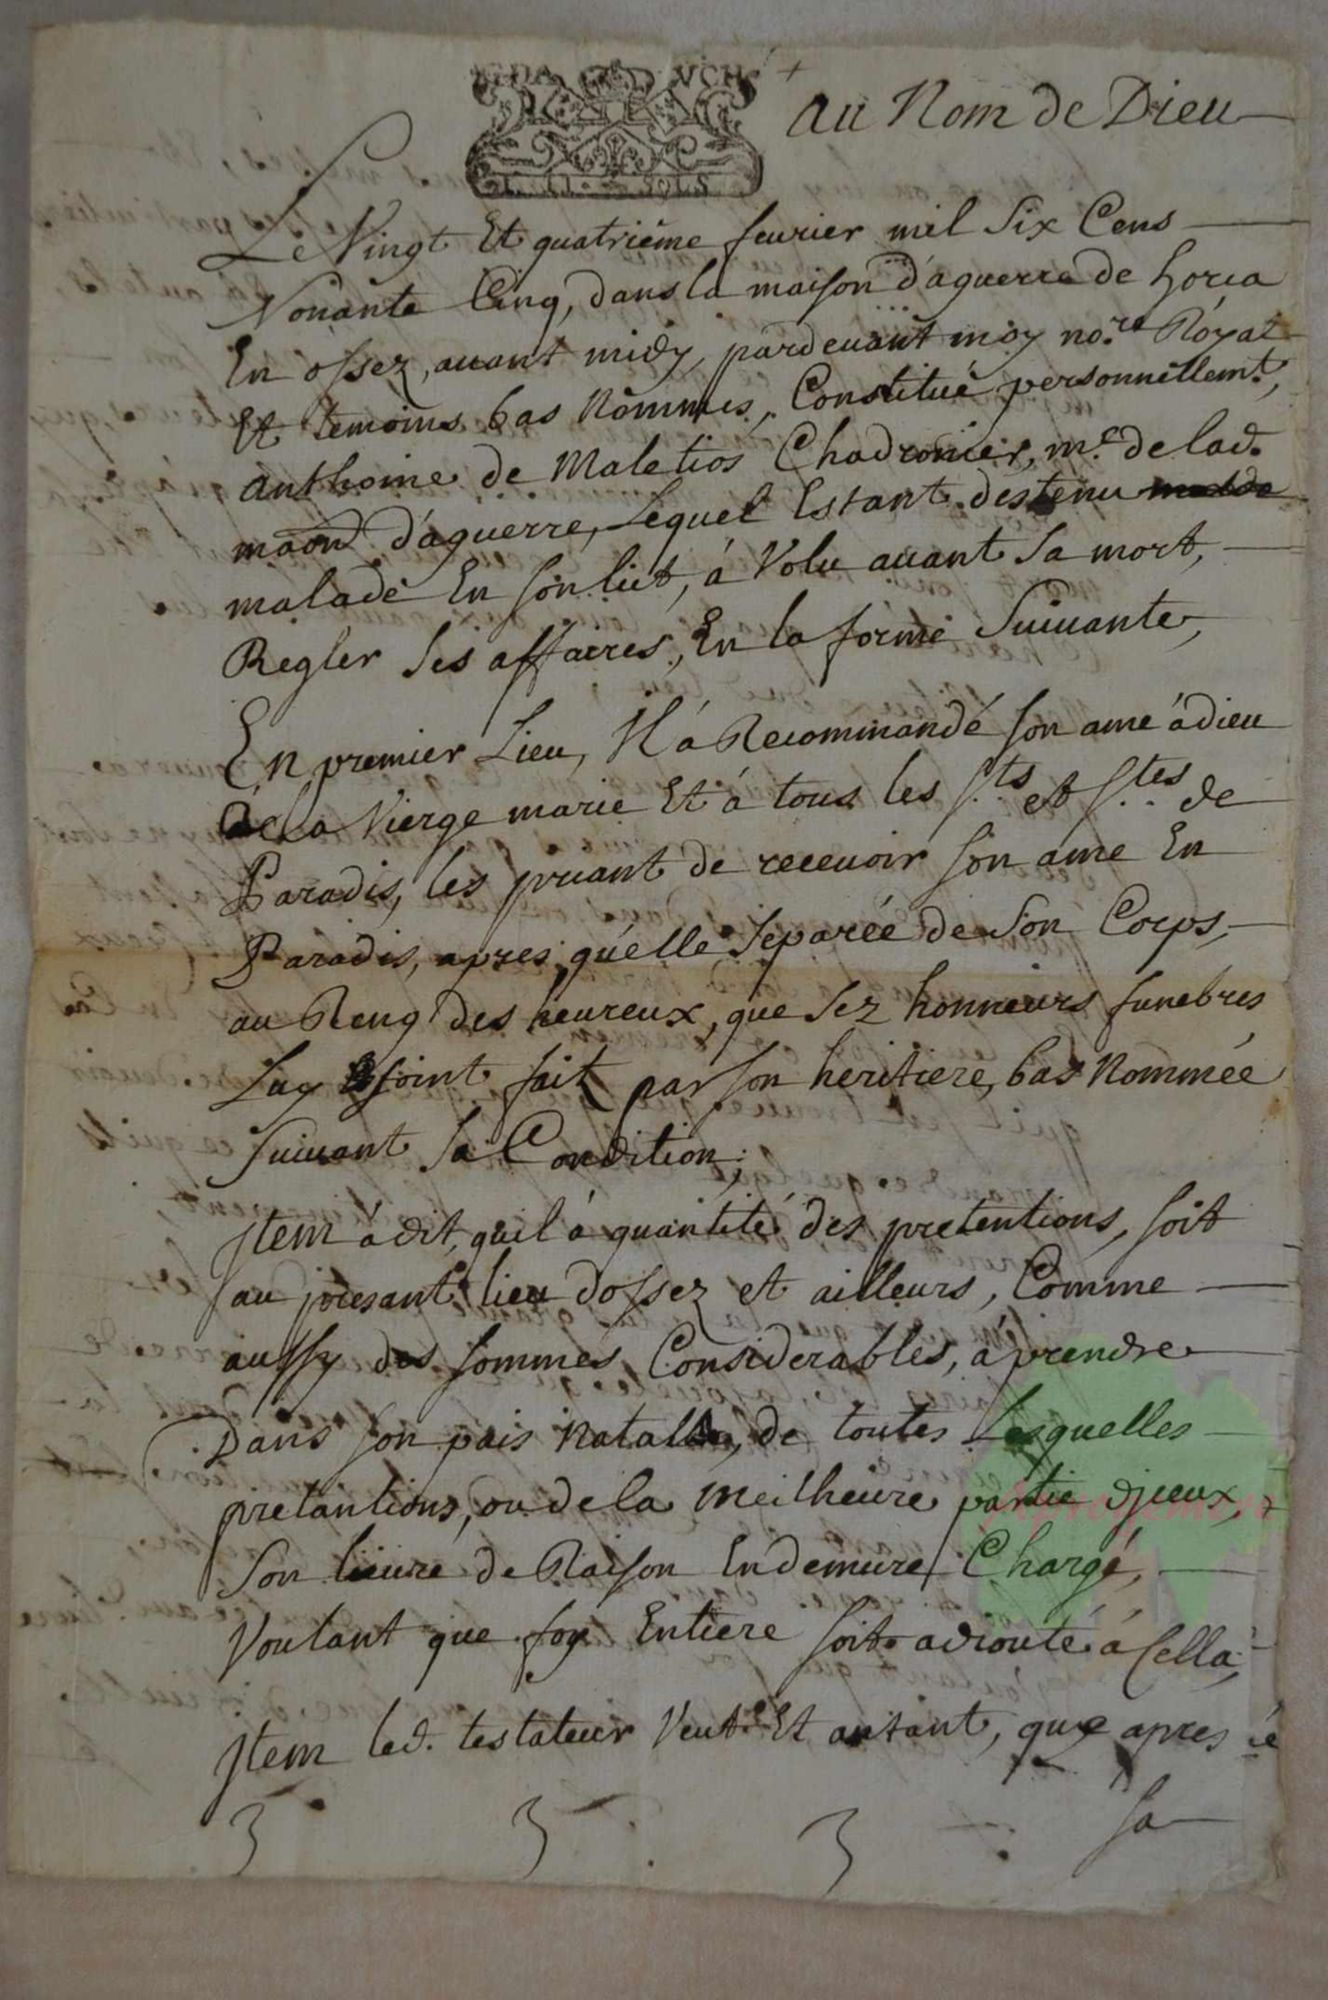 Au Nom de Dieu
SOLS
Le Vingt Et quatriéme feurier mil Six Cens
Nonante Cinq, dans la maison d'aguerre de horça
En ossez, auant midy, pardeuant moy no.re Royal
Et temoins bas Nommés, Constitué personnellem.t,
Anthoine de Maletios Chadronier, m.e de lad.
maon d'aguerre, Lequel Estant destenu
malade En son lict, á Volu auant Sa mort,
Regler Ses affaires, En la forme Suiuante,
En premier Lieu, Il á Recommandé son ame á dieu
á la Vierge marie Et á tous les S.ts et S.tes de
Paradis, les priant de receuoir son ame En
Paradis, apres qu'elle Separée de Son Corps,
au Reng des heureux, que Sez honneurs funebres
Luy soint fait par son heritiere, bas Nommée
Suiuant Sa Condition;
Jtem á dit, quil á quantité des pretentions, soit
au presant lieu dossez et ailleurs, Comme
aussy des sommes Considerables, á prendre
Dans son pais Natal, de toutes Lesquelles
pretantions, ou de la meilheure partie d'jceux,
Son lieure de Raison En demure Chargé,
Voulant que foy Entiere soit adiouté á Cella,
Jtem led. testateur Veut Et antant, que apres
Sa